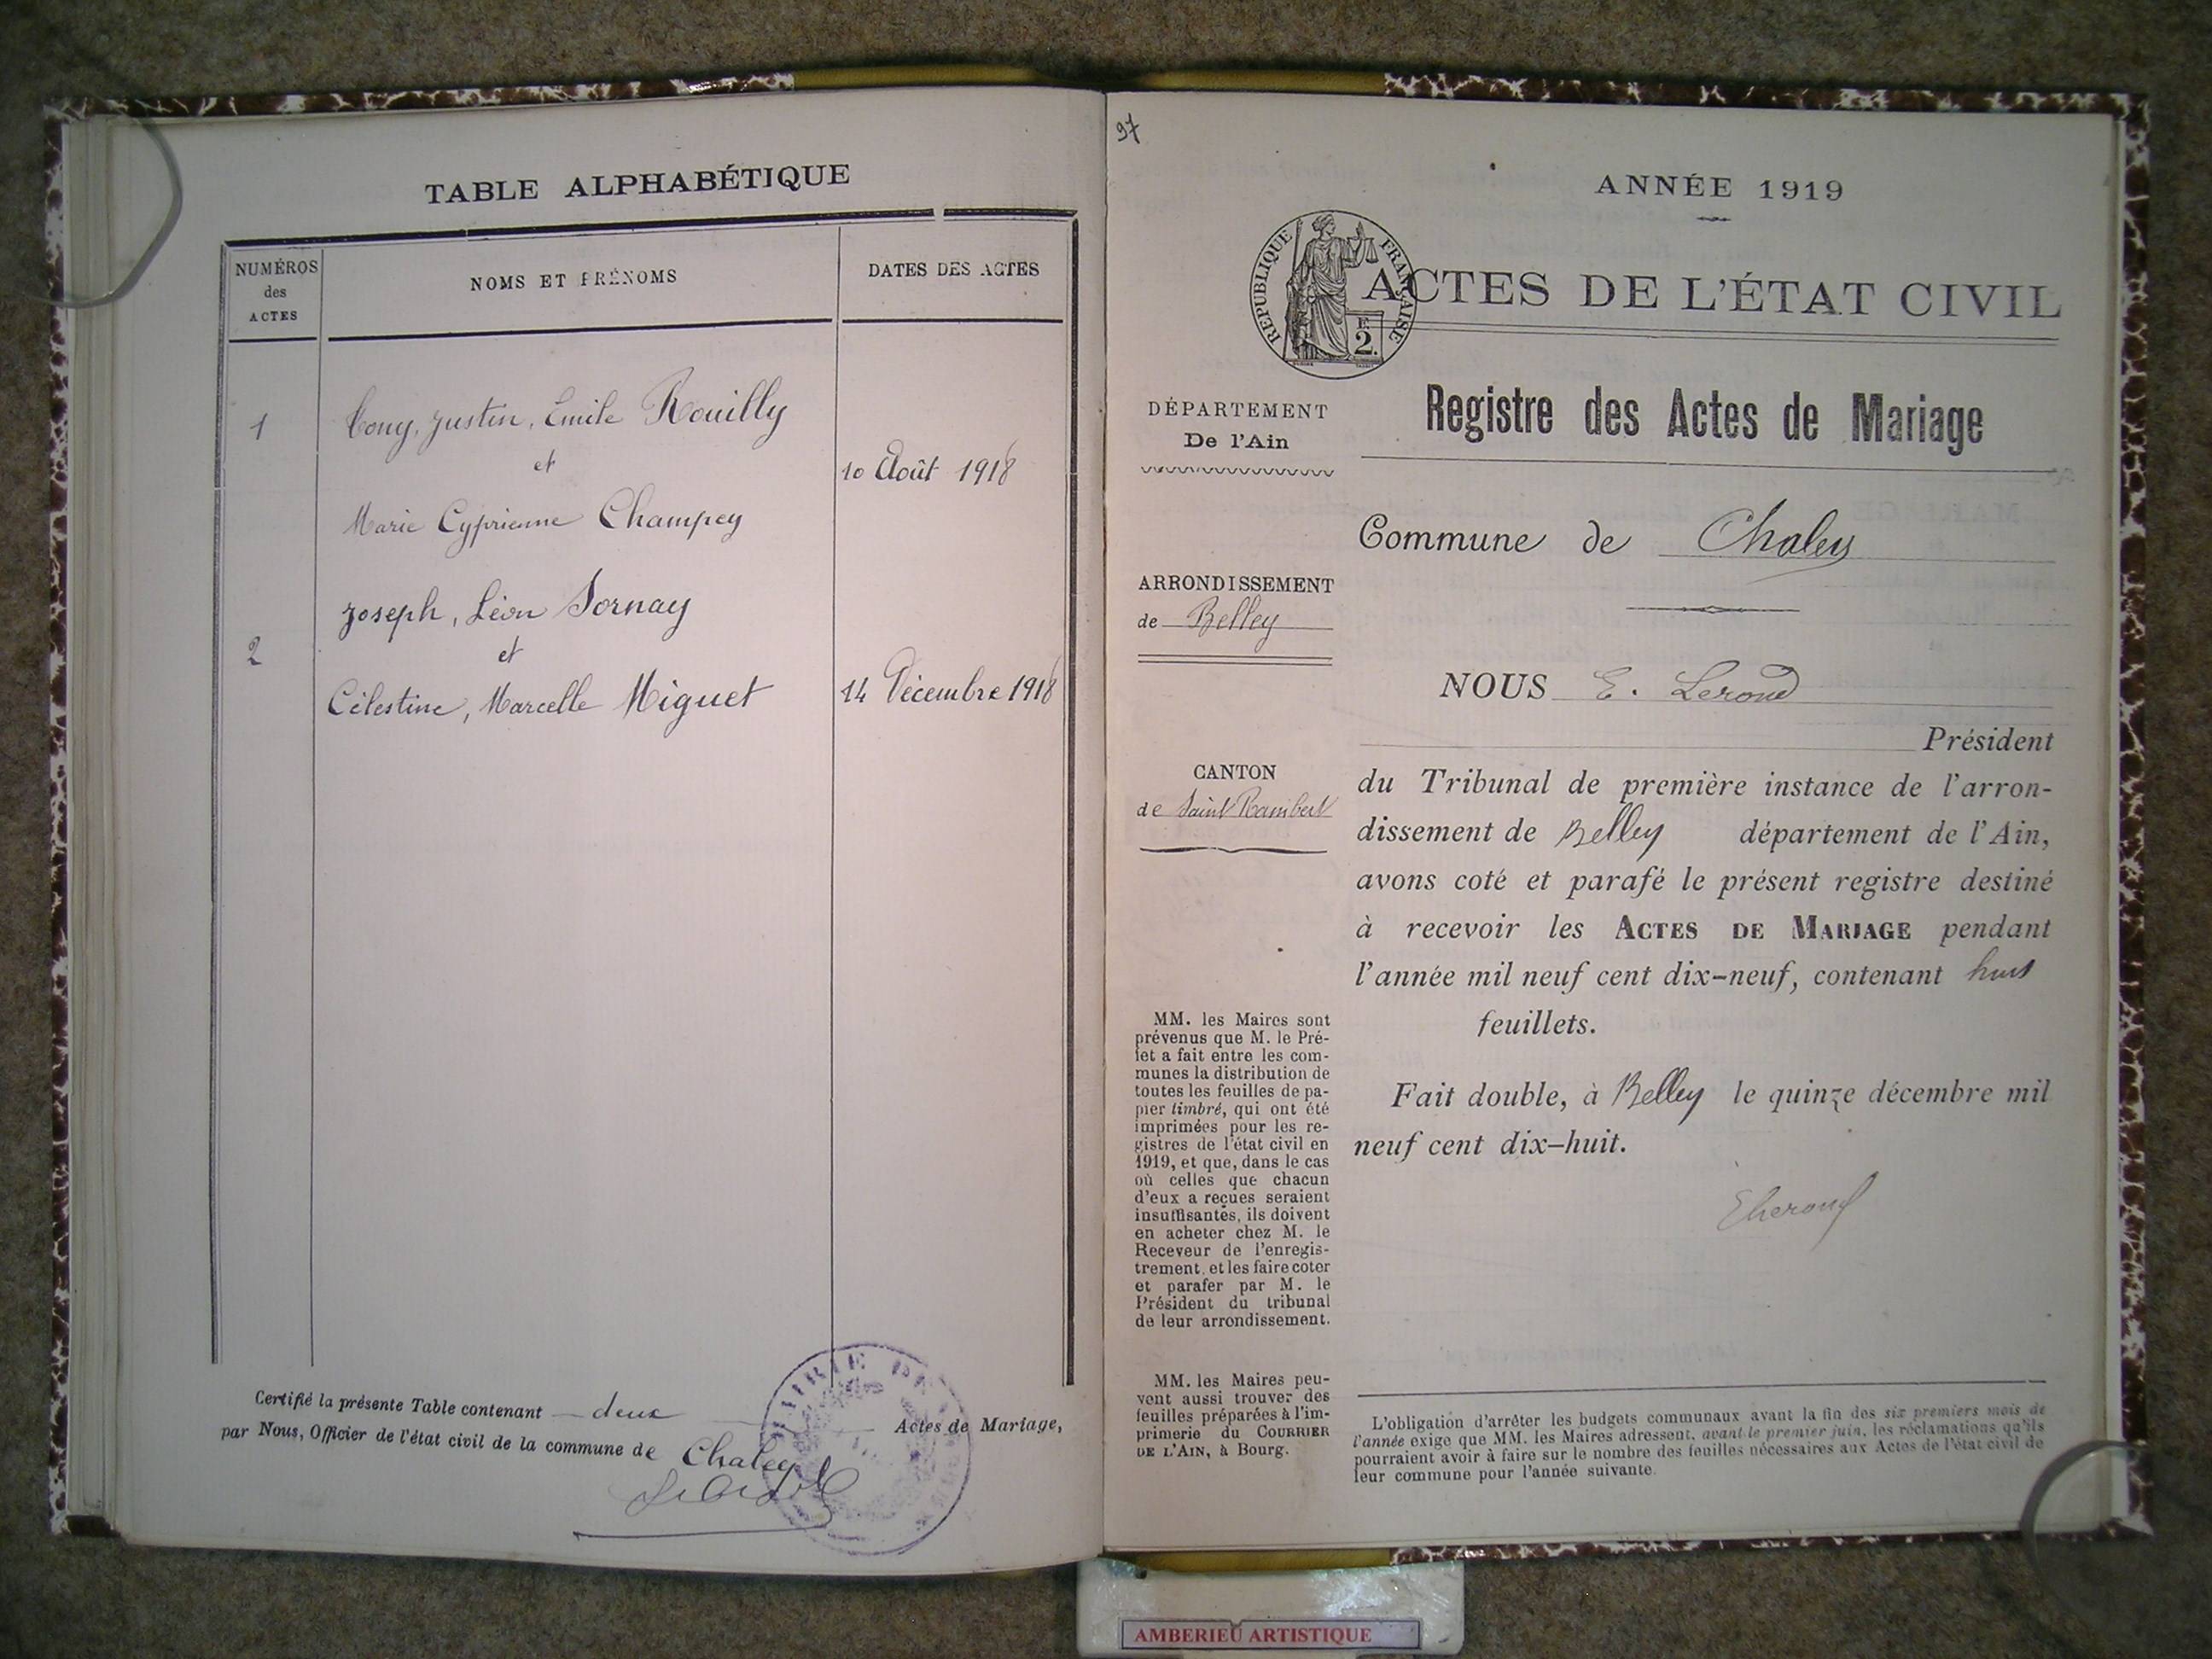 TABLE ALPHABÉTIQUE
NUMÉROS
des
ACTES
NOMS ET PRÉNOMS
DATES DES ACTES
1
Tony, Justin, Emile Rouilly
et
10 Août 1918
Marie Cyprienne Champey
Joseph, Léon Sornay
2
et
Célestine, Marcelle Miguet
14 Décembre 1918
Certifié la présente Table contenant deux Actes de Mariage,
par Nous, Officier de l'état civil de la commune de Chaley
MAIRIE DE
97
ANNÉE 1919
RÉPUBLIQUE FRANÇAISE
2.
ACTES DE L'ÉTAT CIVIL
Registre des Actes de Mariage
DÉPARTEMENT
De l'Ain
Commune de Chaley
ARRONDISSEMENT
de Belley
NOUS E. Leroud
Président
CANTON
de Saint Rambert
du Tribunal de première instance de l'arron-
dissement de Belley département de l'Ain,
avons coté et parafé le présent registre destiné
à recevoir les ACTES DE MARIAGE pendant
l'année mil neuf cent dix-neuf, contenant huit
feuillets.
Fait double, à Belley le quinze décembre mil
neuf cent dix-huit.
MM. les Maires sont
prévenus que M. le Pré-
fet a fait entre les com-
munes la distribution de
toutes les feuilles de pa-
pier timbré, qui ont été
imprimées pour les re-
gistres de l'état civil en
1919, et que, dans le cas
où celles que chacun
d'eux a reçues seraient
insuffisantes, ils doivent
en acheter chez M. le
Receveur de l'enregis-
trement, et les faire coter
et parafer par M. le
Président du tribunal
de leur arrondissement.
MM. les Maires peu-
vent aussi trouver des
feuilles préparées à l'im-
primerie du COURRIER
DE L'AIN, à Bourg.
L'obligation d'arrêter les budgets communaux avant la fin des six premiers mois de
l'année exige que MM. les Maires adressent, avant le premier juin, les réclamations qu'ils
pourraient avoir à faire sur le nombre des feuilles nécessaires aux Actes de l'état civil de
leur commune pour l'année suivante.
AMBERIEU ARTISTIQUE